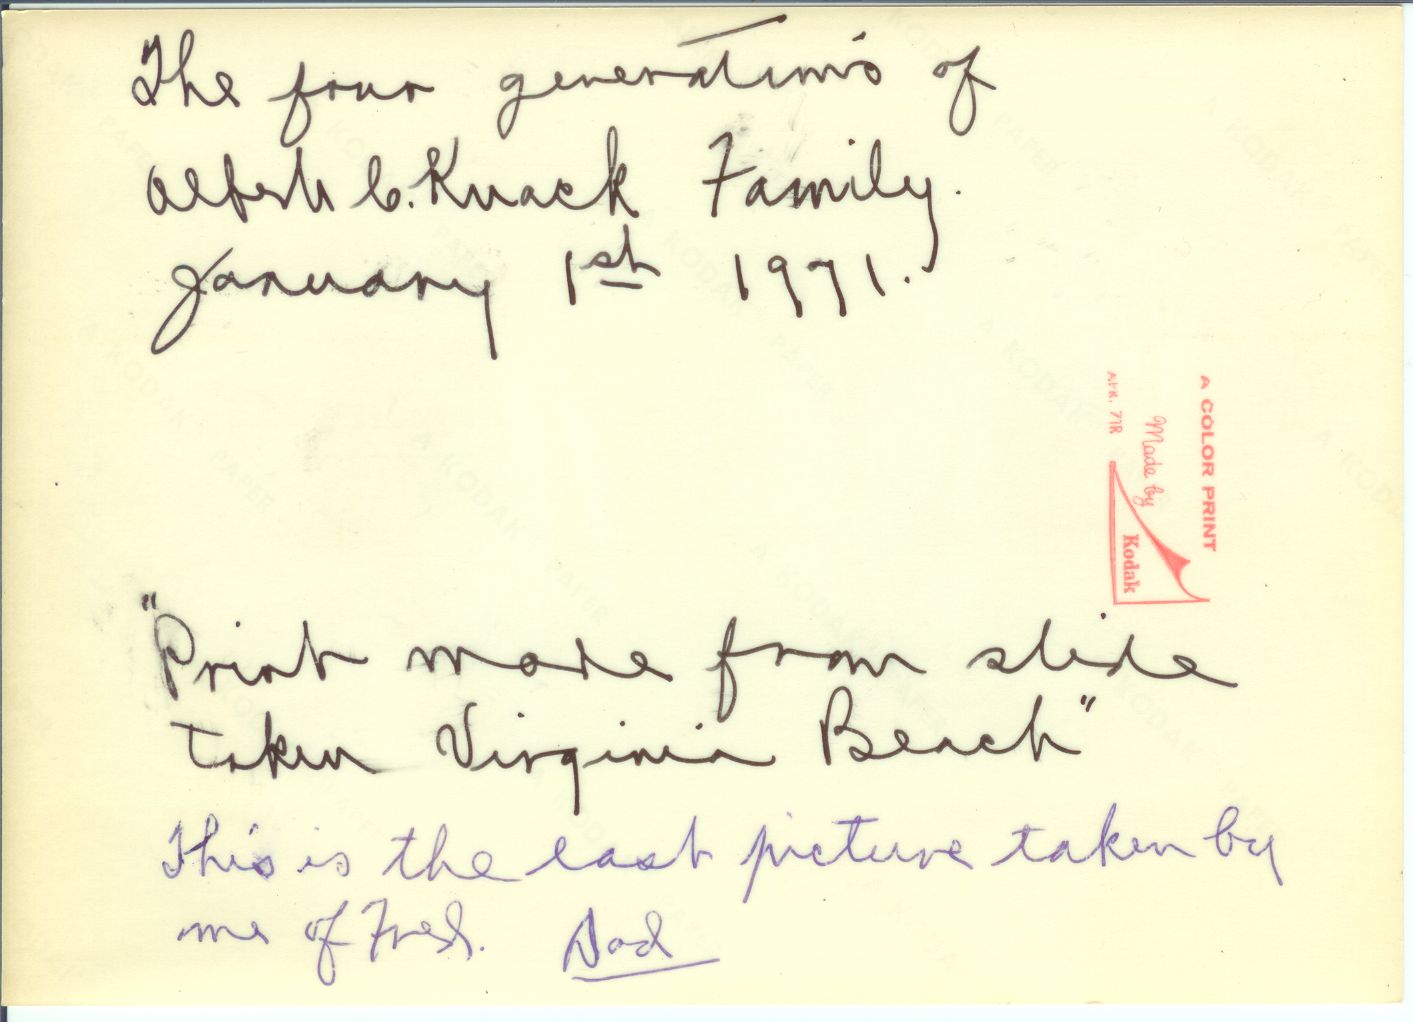 The four generations of
Albert C. Knack Family.
January 1st 1971.
A COLOR PRINT
Made by
Kodak
APR. 71R
"Print made from slide
taken Virginia Beach"
This is the last picture taken by
me of Fred. Dad
A KODAK PAPER